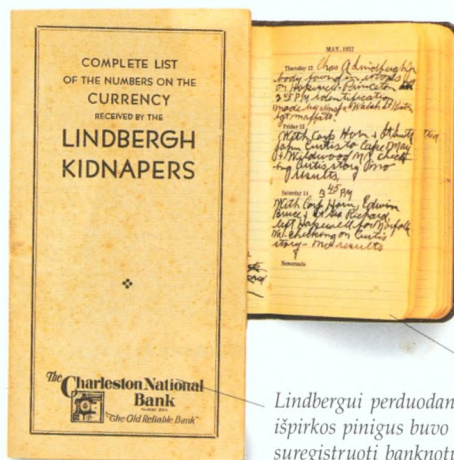 COMPLETE LIST
OF THE NUMBERS ON THE
CURRENCY
RECEIVED BY THE
LINDBERGH
KIDNAPERS
The Charleston National
Bank
"The Old Reliable Bank"
MAY, 1932
Thursday 12 Chas A Lindbergh Jr
body found in woods
on Hopewell Princeton
3:15 PM identification
made by
Friday 13
With Corp Horn &
John Curtis to Cape May
& Wildwood NJ check
ing Curtis story no
results
Saturday 14 3 45 PM
With Corp Horn, Edwin
Bruce & Richard
left Hopewell for Norfolk
Va. checking on Curtis
story - no results
Memoranda
Lindbergui perduodan
išpirkos pinigus buvo
suregistruoti banknotų